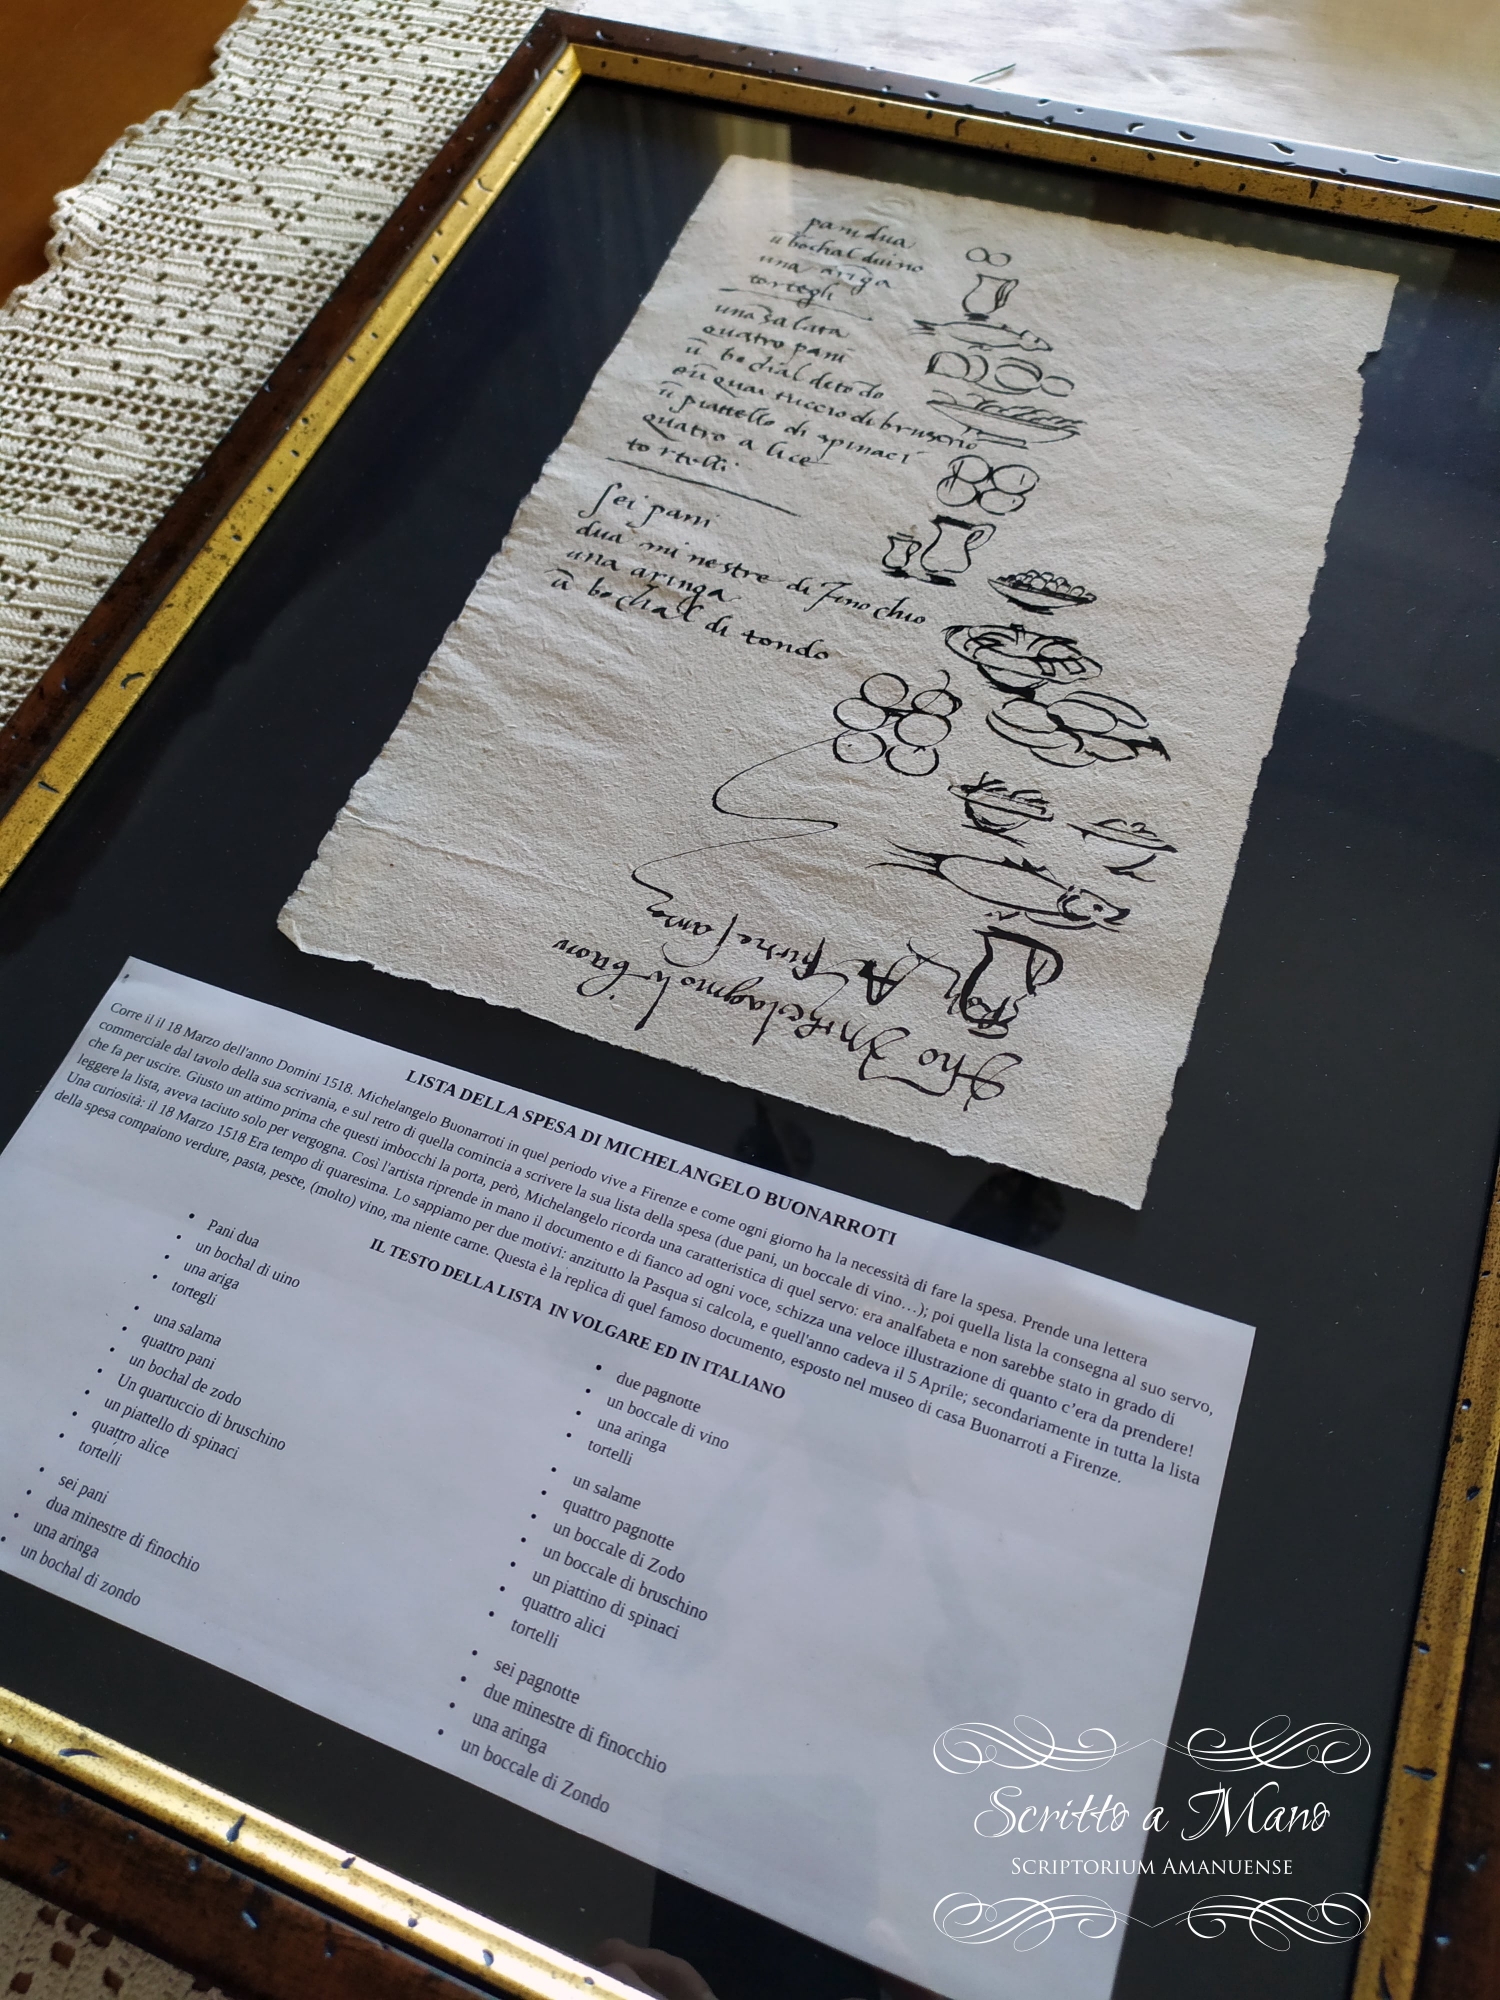 pani dua
ū bochal duino
una ariga
tortegli
una salata
quatro pani
ū bochal detōdo
e ū quartuccio di bruscino
ū piattello di spinaci
quatro alice
tortelli
sei pani
dua minestre di finochio
una aringa
ū bochal di tondo
LISTA DELLA SPESA DI MICHELANGELO BUONARROTI
Corre il il 18 Marzo dell'anno Domini 1518. Michelangelo Buonarroti in quel periodo vive a Firenze e come ogni giorno ha la necessità di fare la spesa. Prende una lettera
commerciale dal tavolo della sua scrivania, e sul retro di quella comincia a scrivere la sua lista della spesa (due pani, un boccale di vino…); poi quella lista la consegna al suo servo,
che fa per uscire. Giusto un attimo prima che questi imbocchi la porta, però, Michelangelo ricorda una caratteristica di quel servo: era analfabeta e non sarebbe stato in grado di
leggere la lista, aveva taciuto solo per vergogna. Così l'artista riprende in mano il documento e di fianco ad ogni voce, schizza una veloce illustrazione di quanto c'era da prendere!
Una curiosità: il 18 Marzo 1518 Era tempo di quaresima. Lo sappiamo per due motivi: anzitutto la Pasqua si calcola, e quell'anno cadeva il 5 Aprile; secondariamente in tutta la lista
della spesa compaiono verdure, pasta, pesce, (molto) vino, ma niente carne. Questa è la replica di quel famoso documento, esposto nel museo di casa Buonarroti a Firenze.
IL TESTO DELLA LISTA IN VOLGARE ED IN ITALIANO
• Pani dua
• un bochal di uino
• una ariga
• tortegli
• una salama
• quattro pani
• un bochal de zodo
• Un quartuccio di bruschino
• un piattello di spinaci
• quattro alice
• tortelli
• sei pani
• dua minestre di finochio
• una aringa
• un bochal di zondo
• due pagnotte
• un boccale di vino
• una aringa
• tortelli
• un salame
• quattro pagnotte
• un boccale di Zodo
• un boccale di bruschino
• un piattino di spinaci
• quattro alici
• tortelli
• sei pagnotte
• due minestre di finocchio
• una aringa
• un boccale di Zondo
Scritto a Mano
SCRIPTORIUM AMANUENSE